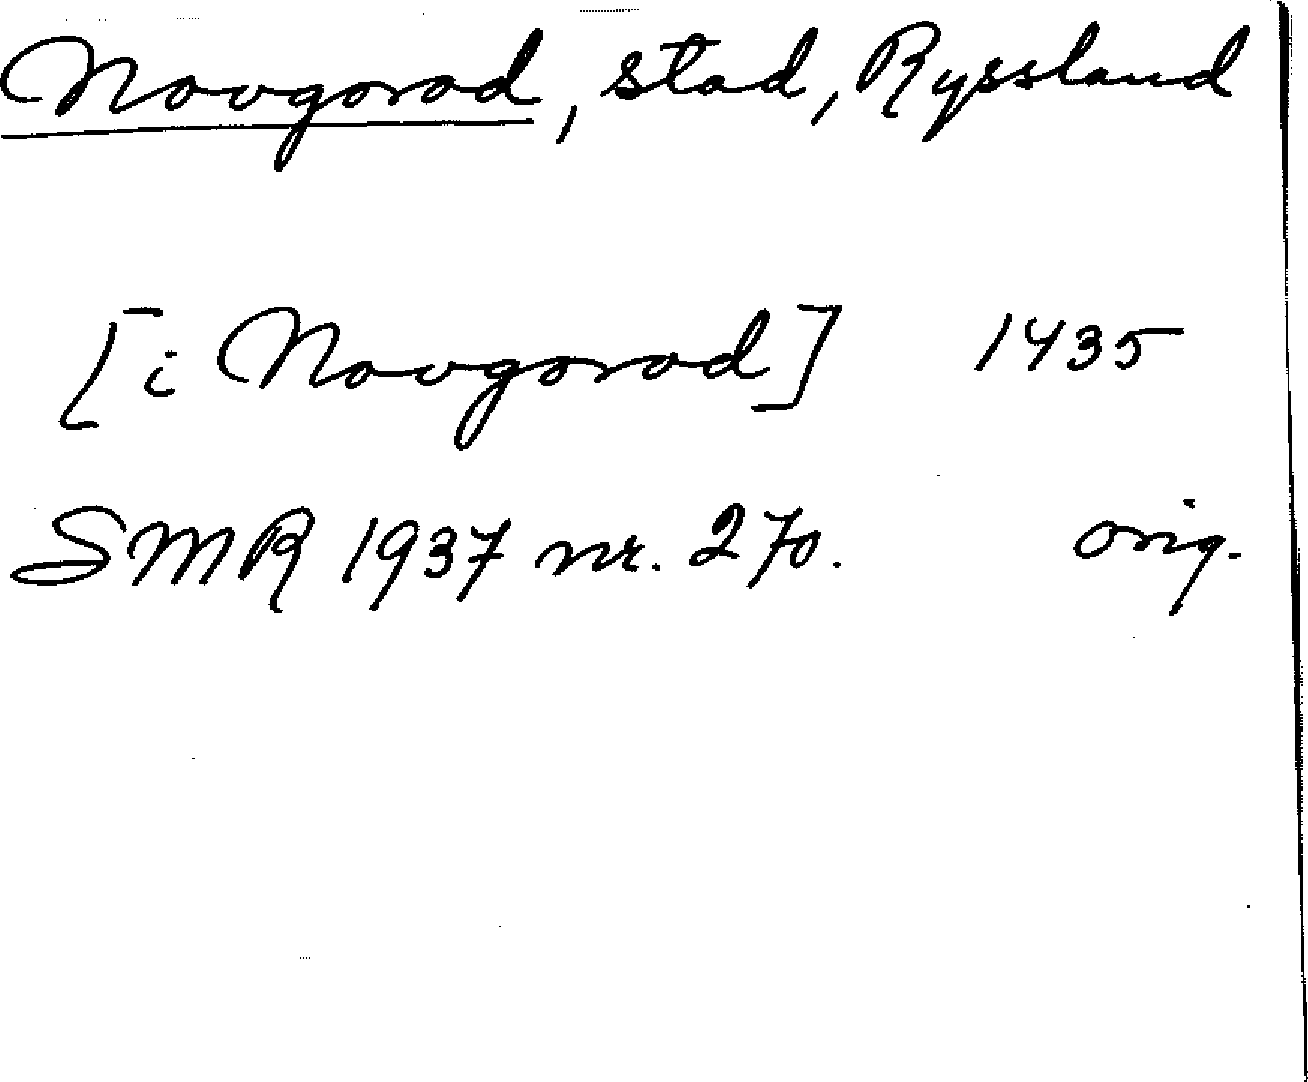 Novgorod, stad, Ryssland
[i Novgorod] 1435
SMR 1937 nr. 270. orig.